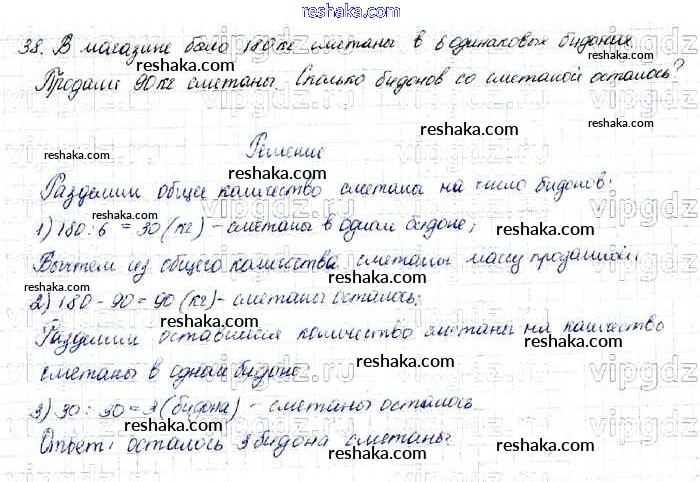 reshaka.com
38. В магазине было 180 кг сметаны в 6 одинаковых бидонах.
reshaka.com
Продали 90 кг сметаны. Сколько бидонов со сметаной осталось?
reshaka.com reshaka.com
vipgdz vipgdz.ru vipgdz
Решение
reshaka.com reshaka.com
Разделим общее количество сметаны на число бидонов:
reshaka.com
1) 180:6 = 30 (кг) - сметаны в одном бидоне;
reshaka.com reshaka.com
Вычтем из общего количества сметаны массу проданной:
vipgdz vipgdz.ru vipgdz
reshaka.com
2) 180 - 90 = 90 (кг) - сметаны осталось;
reshaka.com reshaka.com
Разделим оставшееся количество сметаны на количество
reshaka.com
сметаны в одном бидоне:
reshaka.com reshaka.com
vipgdz vipgdz.ru vipgdz
3) 90 : 30 = 3 (бидона) - сметаны осталось.
reshaka.com
Ответ: осталось 3 бидона сметаны.
reshaka.com reshaka.com